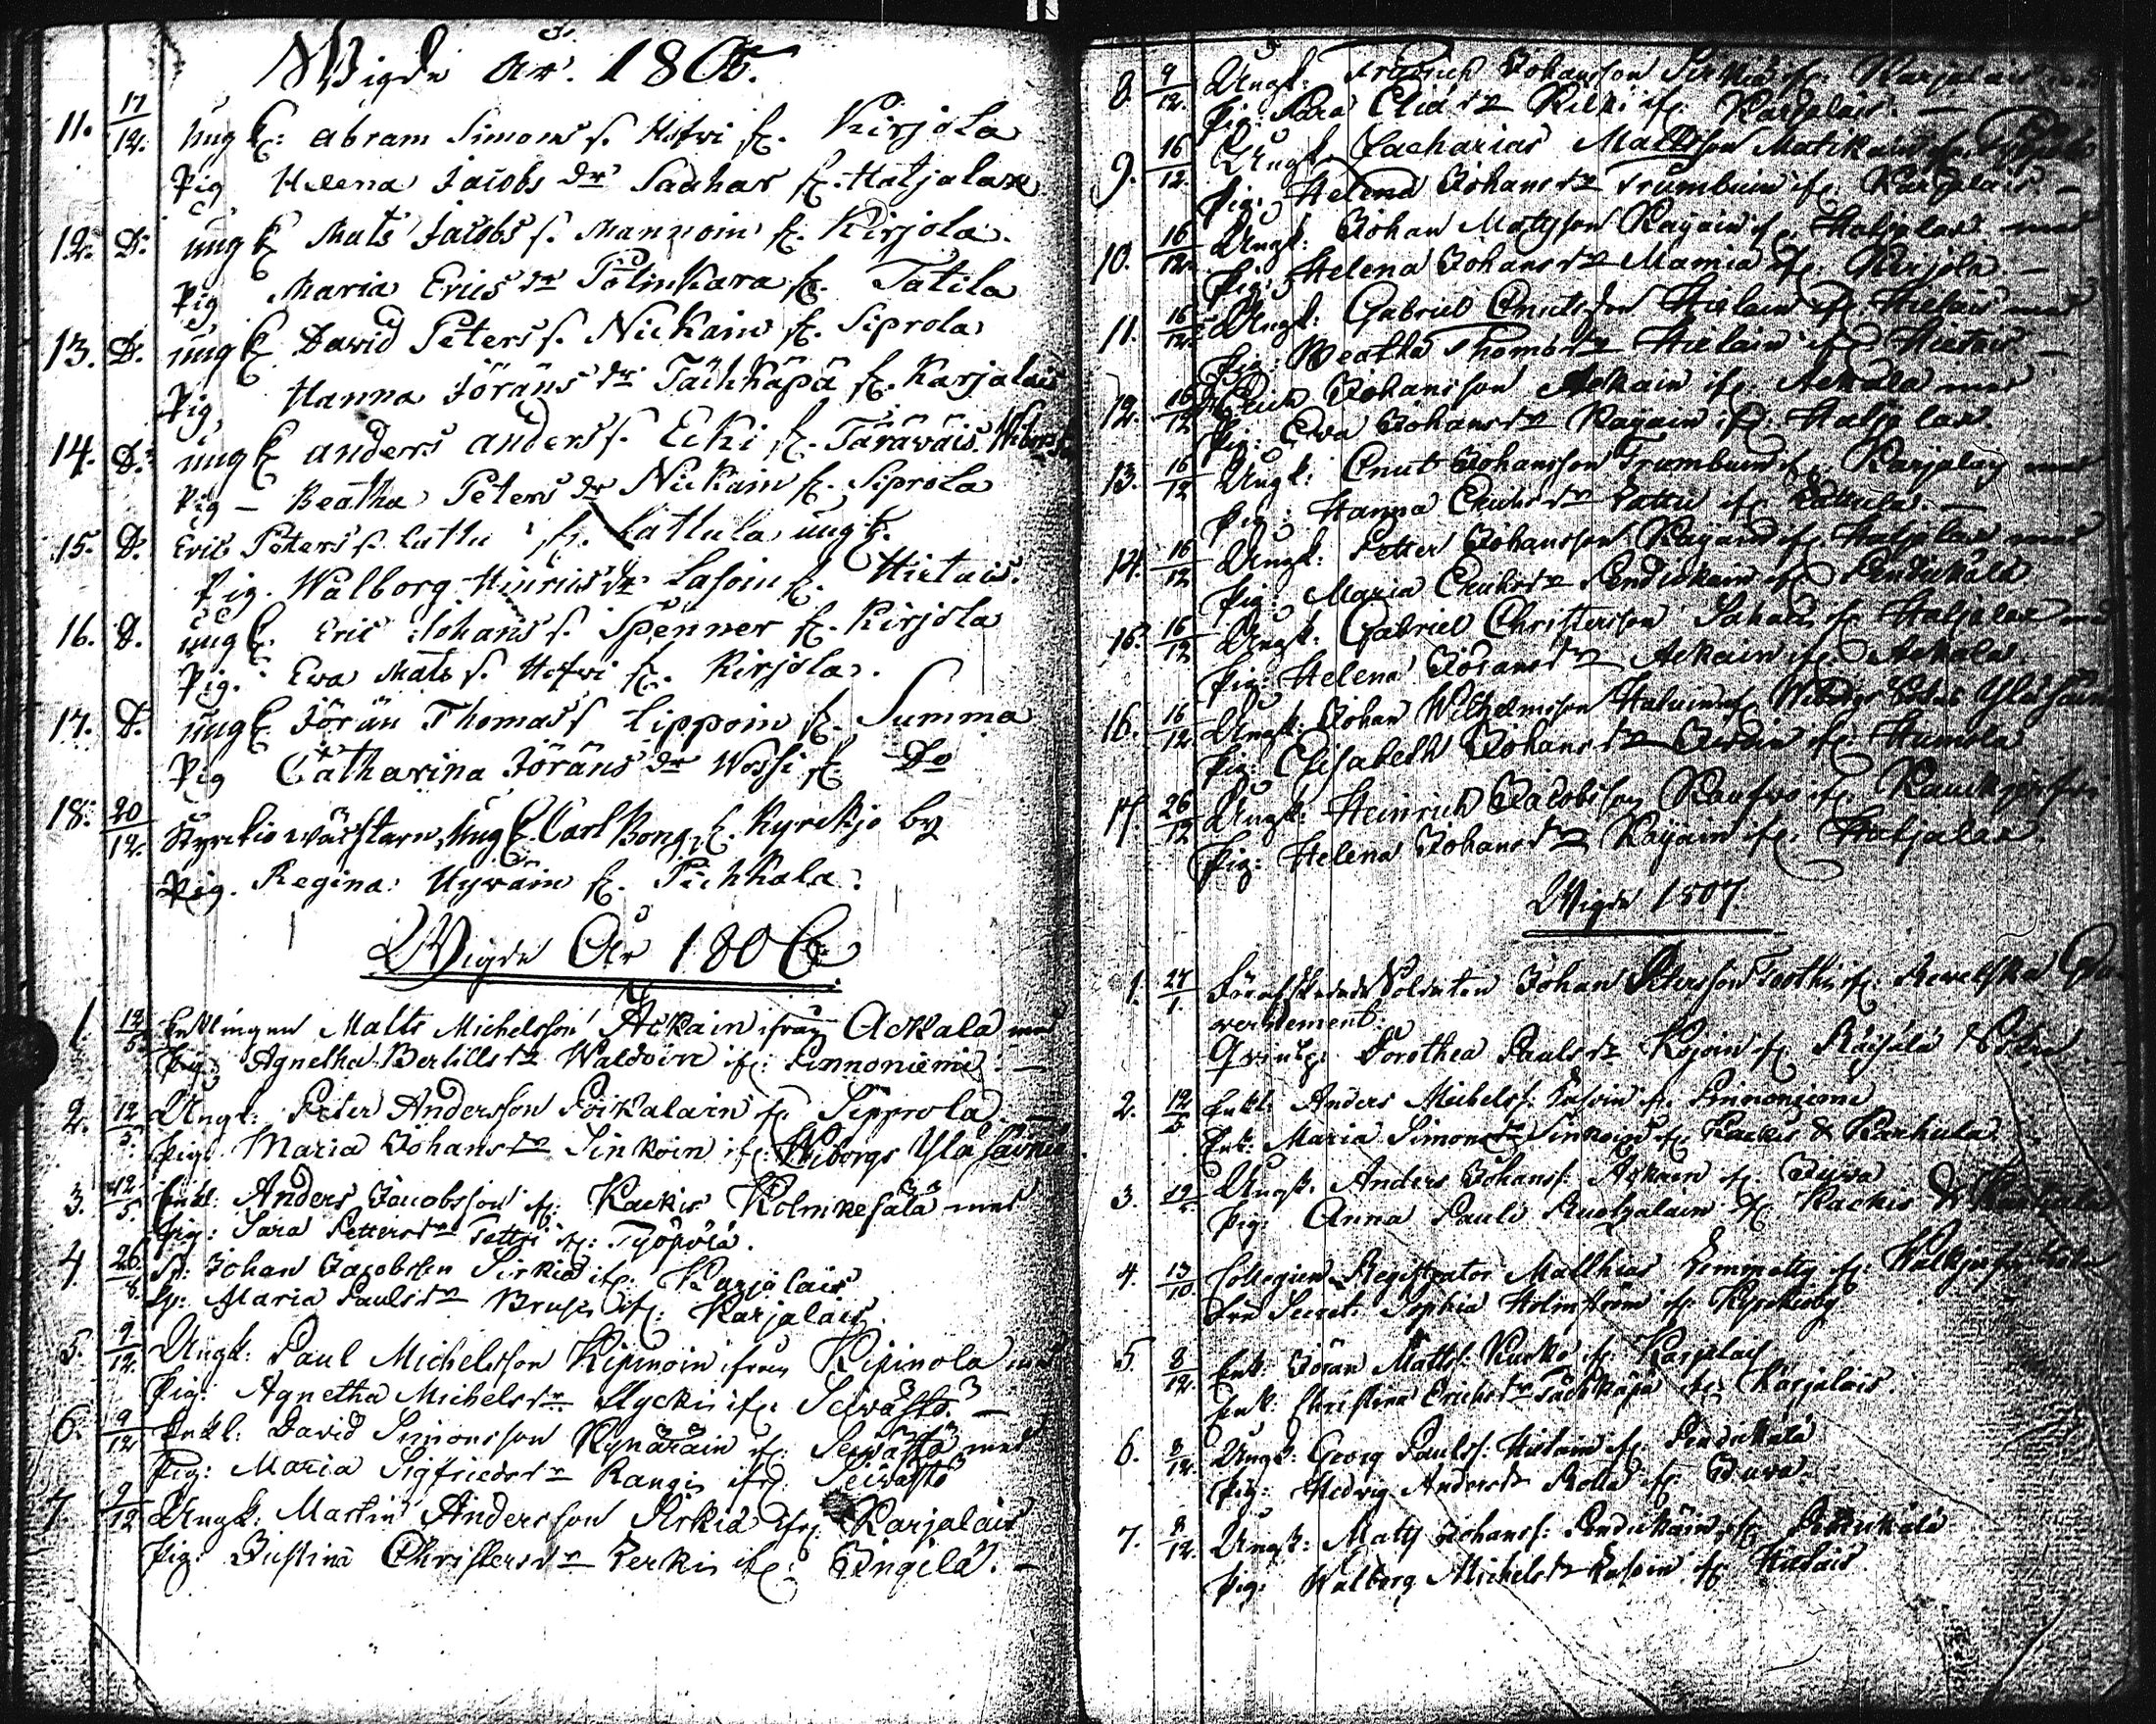 Wigde År 1805.
11. 17/12. ungk: Abram Simons s. Hofvi fr. Kirjola
Pig Helena Jacobs dr Sachar fr. Hatjalax
12. Do ungk Mats Jacobs s. Mannoin fr. Kirjola.
Pig Maria Erics dr Polinkara fr. Tatila
13. Do ungk David Peters s. Nickain fr. Siprola
Pig Hanna Jörans dr Tächkäpä fr. Karjalais
14. Do ungk Anders Anders s. Ecki fr. Taräwäis.
Pig – Beatha Peters dr Nickain fr. Siprola
15. D. Eric Peters s. Lattu fr. Lattula ungk.
Pig. Walborg Hinrics dr Lasoin fr. Hietais.
16. D. ungk Eric Johans s. Spenner fr. Kirjola
Pig. Ewa Mats s. Hofwi fr. Kirjola.
17. D. ungk Jöran Thomas s Lippoin fr. Summa
Pig Catharina Jörans dr Wossi fr Do
18. 20/12. Kyrckiowäcktaren, Ungk. Carl Bong fr. Kyrckjo by
Pig. Regina Hyväin fr. Pichkala.
Wigde År 1806
1. 12/5 Enklingen Matts Michelsson Ackain ifrån Ackala med
Pig: Agnetha Bertills dr Waldoin ifr: Pinnoniemi. –
2. 12/5. Ungk: Peter Andersson Poikalain fr Sipprola –
Pig: Maria Johans dr Sinkoin ifr: Wiborgs Ylä
3. 12/5. Enkl: Anders Jacobsson ifr: Kackis Kolmikesälä med
Pig: Sara Petters dr Tettri ifr: Työpöiä.
4. 26/8. Johan Jacobsson Sirkiä ifr: Karjalais
Maria Pauls dr ifr: Karjalais.
5. 9/12. Ungk: Paul Michelsson Kipinoin ifrån Kipinola med
Pig: Agnetha Michels dr ifr. Seiwästö. –
6. 9/12 Enkl: David Simonsson Kynäräin ifr: Seiwästö med
Pig: Maria Sigfrieds dr Rangi ifr: Seiwästö
7. 9/12 Ungk: Martin Andersson Sirkiä ifr: Karjalais
Pig: Justina Christers dr Perki ifr: Jingilä. –
8. 9/12. Ungk: Friedrich Johansson Sirkiä ifr: Karjalais
Pig: Sara Eliä dr Kilki ifr: Karjalais. –
9. 16/12. Ungk: Zacharias Mattsson Matikain ifr:
Pig: Helena Johans dr Trumbuin ifr: Karjalais –
10. 16/12. Ungk: Johan Mattsson Kayain ifr. Hatjalax med
Pig: Helena Johans dr Mamia ifr: Kirjola –
11. 16/12. Ungk: Gabriel Cnutsson Hielain ifr: Hietais med
Pig: Beatha Thomas dr Hielain ifr: Hietais –
12. 16/12 Erich Johansson Ackain ifr: Ackala med
Pig: Ewa Johans dr Kayain ifr: Hatjalax.
13. 16/12 Ungk: Cnut Johansson Trumbuin ifr: Karjalais med
Pig: Hanna Erichs dr Lattu ifr: Lattula. –
14. 16/12 Ungk: Petter Johansson Kayain ifr: Hatjalax med
Pig: Maria Erichs dr Pendickain ifr: Pendickälä
15. 16/12 Ungk: Gabriel Christersson Sahari ifr: Hatjalax med
Pig: Helena Jörans dr Ackain ifr: Ackala. –
16. 16/12 Ungk: Johan Wilhelmsson ifr:
Pig: Elisabeth Johans dr ifr: Humola
17. 26/12 Ungk: Heinrich Jacobsson ifr:
Pig: Helena Johans dr Kayain ifr: Hatjalax.
Wigde 1807.
1. 27/1. Förafskedade Soldaten Johan Petersson ifr: Rewelska Gou-
vernement.
Qvinsp: Dorothea Pauls dr ifr Räisälä
2. 12/5 Enkl: Anders Michelss: Lasoin fr. Pinnoniemi
Enk: Maria Simons dr Sinkoin ifr: Kackis & Karkula
3. 12/5 Ungk. Anders Johanss: Ackain ifr. Juwa
Pig: Anna Pauls ifr: Kackis &
4. 13/10. Collegien Registrator Matthias ifr:
Sophia Holmström ifr: Kyrckoby
5. 8/12. Enk: Jöran Mattss: Kurki ifr: Karjalais
Enk: Christina Erichs dr Tächkäpä ifr: Karjalais.
6. 8/12. Ungk: Georg Paulss: Hietain ifr: Pendickälä
Pig: Hedvig Anders dr ifr: Juwa.
7. 8/12. Ungk: Mats Johanss: Pendickäin ifr: Pendickälä
Pig: Walborg Michels dr Lasoin ifr Hietais.